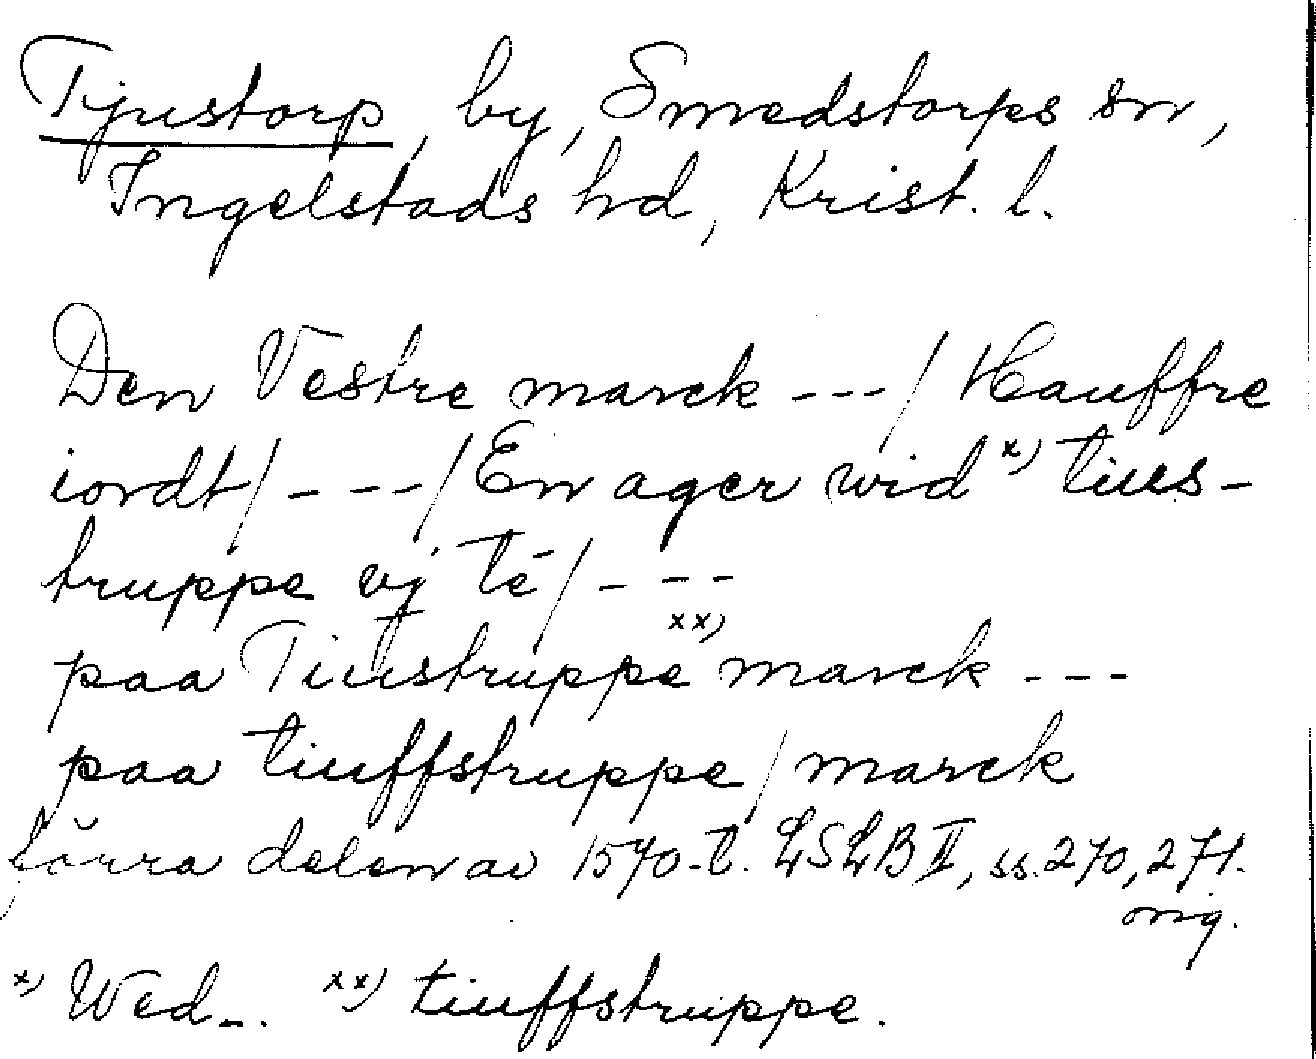 Tjustorp, by, Smedstorps sn,
Ingelstads hd, Krist. l.
Den Vestre marck ---/ Hauffre
iordt/ ---/ En ager wid x) tius-
truppe vj te/ ---
paa Tiustruppe xx) marck ---
paa tiuffstruppe/ marck
förra delen av 1570-t. LSLB II, ss. 270, 271.
orig.
x) Wed-. xx) tiuffstruppe.